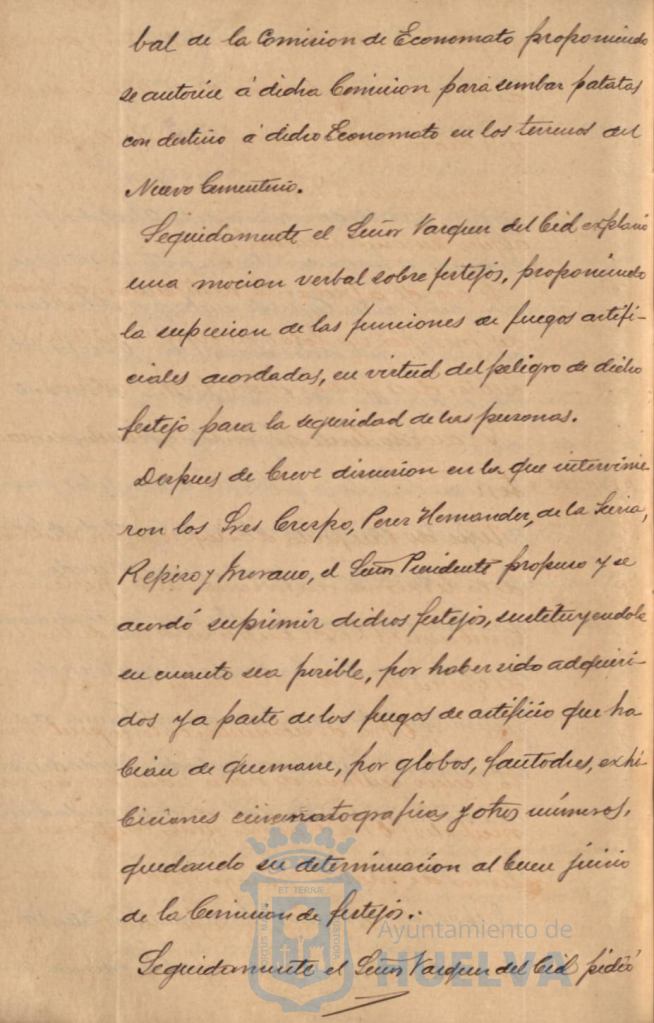 bal de la Comision de Economato proponiendo
se autorice á dicha Comision para sembar patatas
con destino á dicho Economato en los terrenos del
Nuevo Cementerio.
Seguidamente el Señor Vazquez del Cid explanó
una mocion verbal sobre festejos, proponiendo
la supresion de las funciones de fuegos artifi-
ciales acordadas, en virtud del peligro de dicho
festejo para la seguridad de las personas.
Despues de breve discusion en la que intervinie
ron los Sres Crespo, Perez Hernandez, de la
Repiso y Morano, el Señor Presidente propuso y se
acordó suprimir dichos festejos, sustituyendole
en cuanto sea posible, por haber sido adquiri-
dos ya parte de los fuegos de artificio que ha
bian de quemarse, por globos, fantoches, exhi
biciones cinematograficas y otros números,
quedando su determinacion al buen juicio
de la Comision de festejos.
Seguidamente el Señor Vazquez del Cid pidió
ET TERRAE
Ayuntamiento de
HUELVA